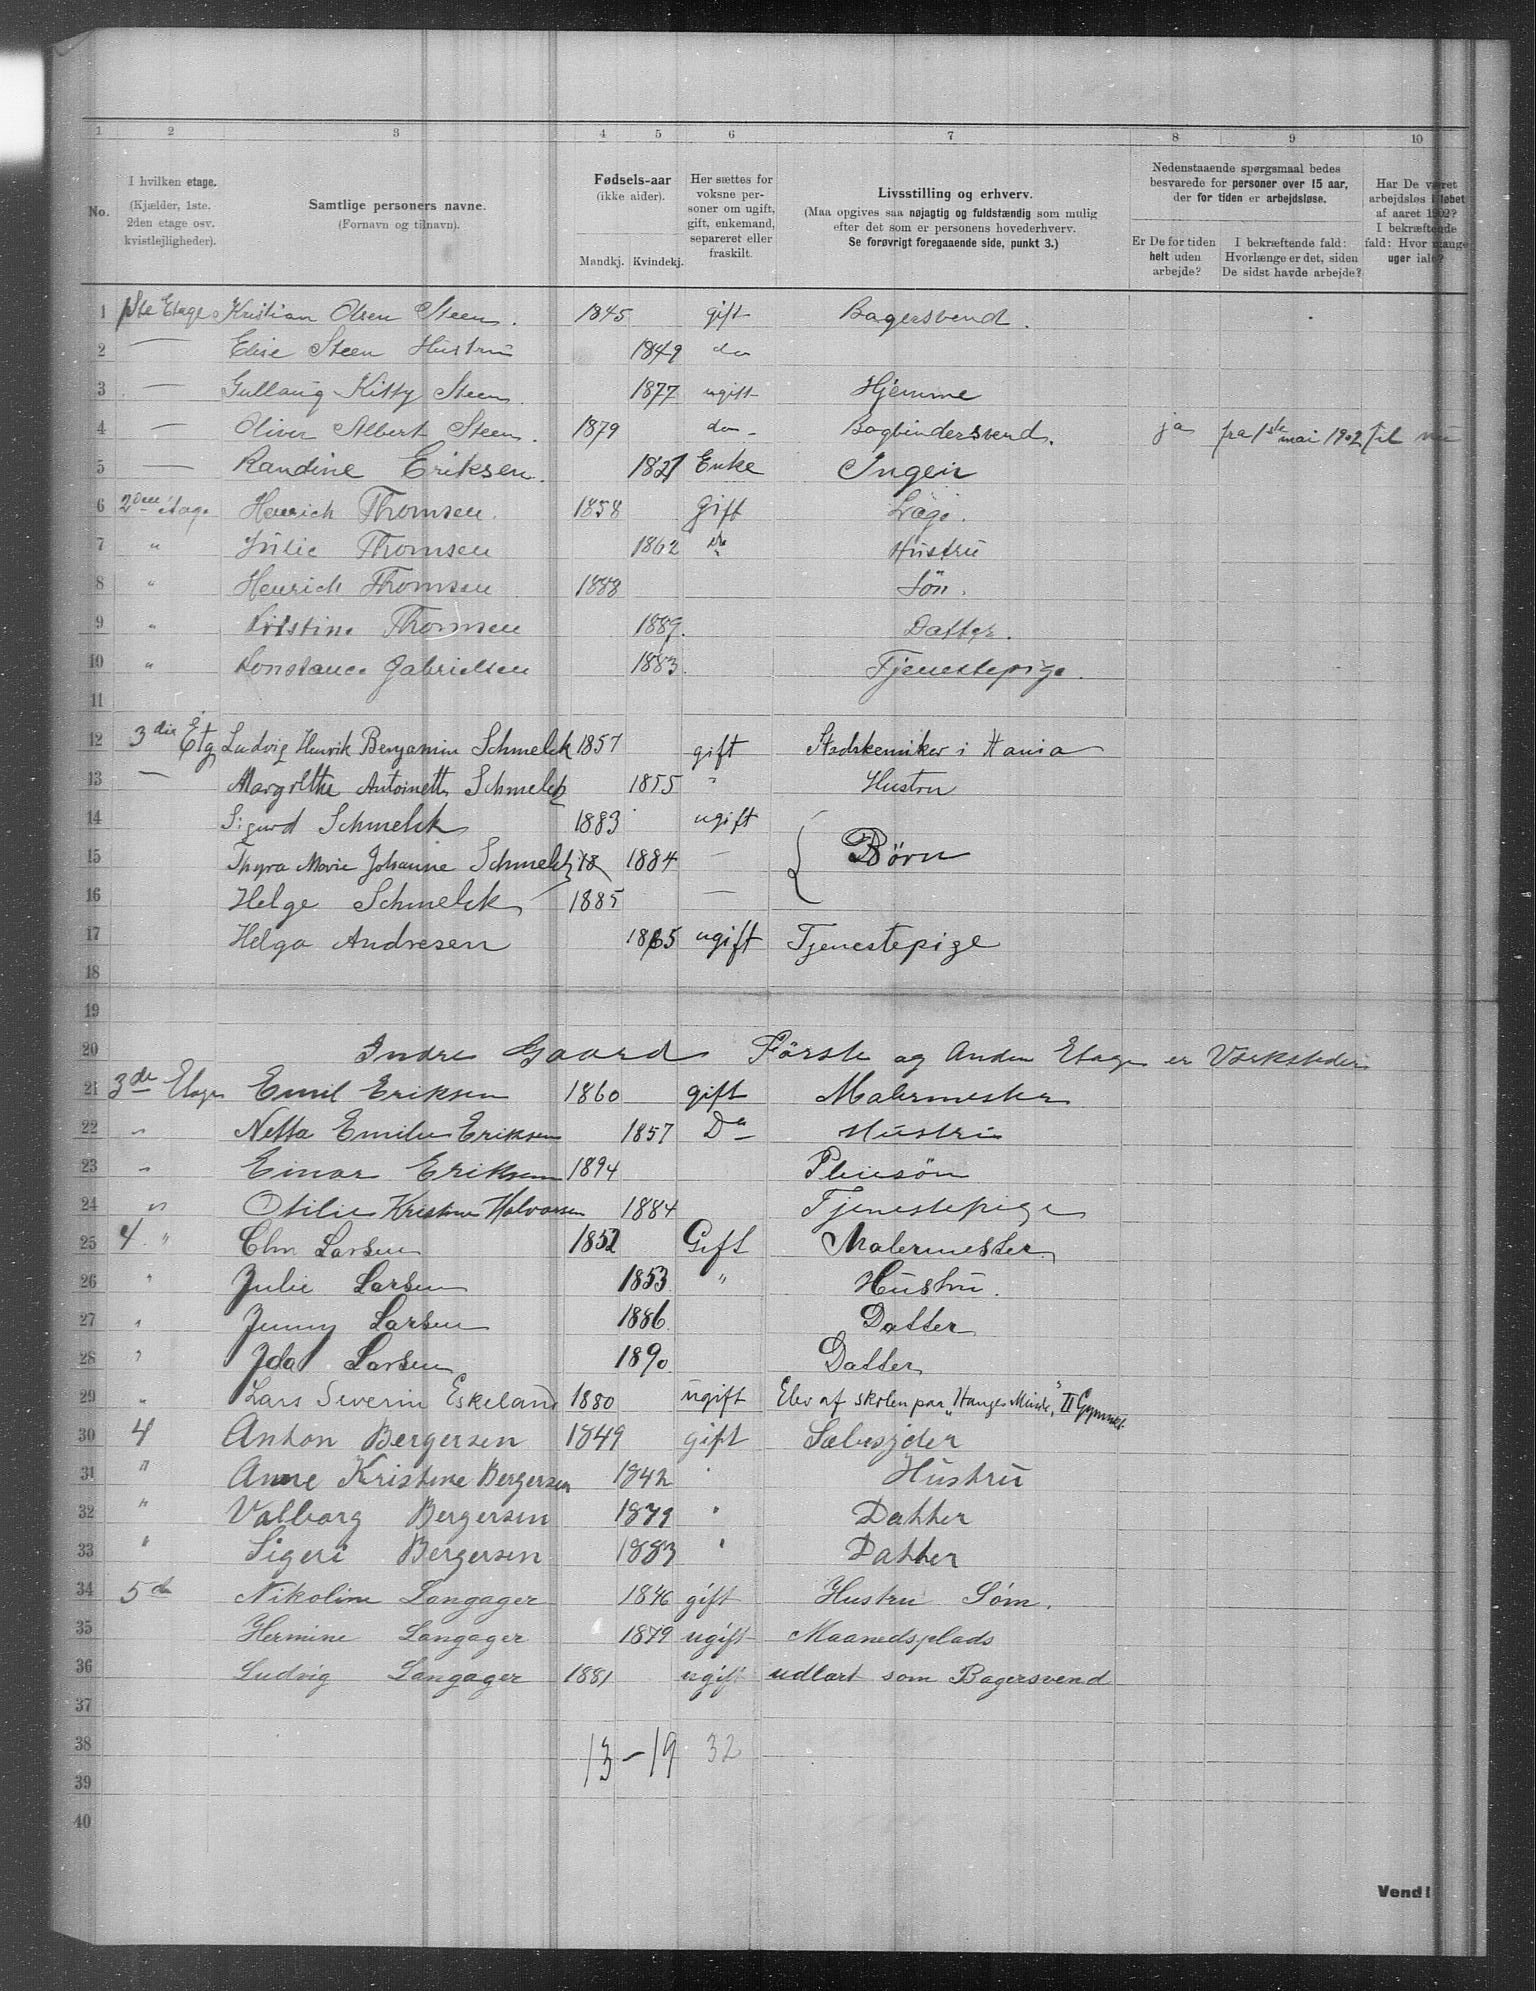 1 2 3 4 5 6 7 8 9 10
No.
I hvilken etage. (Kjælder, 1ste. 2den etage osv. kvistlejligheder).
Samtlige personers navne. (Fornavn og tilnavn).
Fødsels-aar (ikke alder).
Mandkj. Kvindekj.
Her sættes for voksne personer om ugift, gift, enkemand, separeret eller fraskilt.
Livsstilling og erhverv. (Maa opgives saa nøjagtig og fuldstændig som mulig efter det som er personens hovederhverv. Se forøvrigt foregaaende side, punkt 3.)
Nedenstaaende spørgsmaal bedes besvarede for personer over 15 aar, der for tiden er arbejdsløse.
Er De for tiden helt uden arbejde?
I bekræftende fald: Hvorlænge er det, siden De sidst havde arbejde?
Har De været arbejdsløs i løbet af aaret 1902? I bekræftende fald: Hvor mange uger ialt?
1 1ste Etage Kristian Olsen Steen. 1845 gift Bagersvend.
2 — Elise Steen Hustru 1849 do
3 — Gullaug Kitty Steen 1877 ugift Hjemme
4 — Oliver Albert Steen. 1879 do - Bogbindersvend. ja fra 1ste mai 1902 til nu
5 — Randine Eriksen. 1821 Enke Ingen
6 2den etage Henrich Thomsen. 1858 Gift Læge.
7 " Julie Thomsen 1862 do Hustru
8 " Henrich Thomsen 1888 Sön.
9 " Kristine Thomsen 1889. Datter.
10 " Konstance Gabrielsen 1883. Tjenestepige.
11
12 3die Etg Ludvig Henrik Benjamin Schmelck 1857 gift Stadskemiker i Kania
13 — Margrethe Antoinette Schmelck 1855 " Hustru
14 Sigurd Schmelck 1883 ugift
15 Thyra Marie Johanne Schmelck 18 1884 — Børn
16 Helge Schmelck 1885 —
17 Helga Andresen 1865 ugift Tjenestepige
18
19
20 Indre Gaard Förste og Anden Etage er Værksteder
21 3de Etage Emil Eriksen 1860 gift Malermester
22 " Netta Emilie Eriksen 1857 Do Hustru
23 " Einar Eriksen 1894 Pleiesön
24 " Otilie Kristine Halvorsen 1884 Tjenestepige
25 4 " Chr Larsen 1852 Gift Malermester
26 " Julie Larsen 1853 " Hustru.
27 " Jenny Larsen 1886. Datter
28 " Ida Larsen 1890. Datter
29 " Lars Severin Eskeland 1880 ugift Elev af skolen paa „Hauges Minde", II Gymnas.
30 4 Anton Bergersen 1849 gift Sæbesyder
31 " Anne Kristine Bergersen 1842 " Hustru
32 " Valborg Bergersen 1879 " Datter
33 " Sigeri Bergersen 1883 " Datter
34 5de Nikoline Langager 1846 gift Hustru Søm.
35 Hermine Langager 1879 ugift Maanedsplads
36 Ludvig Langager 1881 ugift udlært som Bagersvend
37
38 13 – 19 32
39
40
Vend!